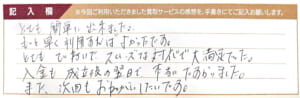 記入欄
※今回ご利用いただきました買取サービスの感想を、手書きにてご記入お願いします。
とても簡単に出来ました。
もっと早く利用すれば よかったです。
とても ひんけて スムーズな対応で 大満足でした。
入金も 成立後の翌日で 本当にありがたいです。
また、次回も おねがいしたいです。